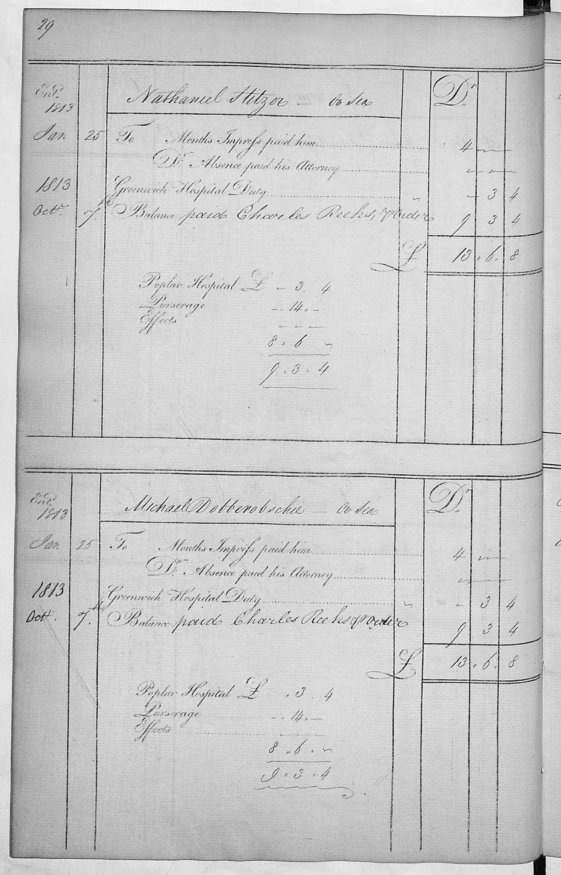 29
Ent.d 1813 Nathaniel Stetzer — Or Sea Dr.
Jan 25 To Months Impress paid him 4 „ —
Do. Absence paid his Attorney „ —
1813 Greenwich Hospital Duty „ „ 3 4
Oct. 7th Balance paid Charles Reeks, p Order 9 3 4
£ 13 „ 6 „ 8
Poplar Hospital £ „ 3 „ 4
Purserage „ 14 „ —
Effects — — —
8 „ 6 „ —
9 „ 3 „ 4
Ent.d 1813 Michael Dobberobschie — Or Sea Dr.
Jan 25 To Months Impress paid him 4 „ —
Do. Absence paid his Attorney „ —
1813 Greenwich Hospital Duty „ „ 3 4
Oct. 7th Balance paid Charles Reeks p Order 9 3 4
£ 13 „ 6 „ 8
Poplar Hospital £ „ 3 „ 4
Purserage „ 14 „ —
Effects — — —
8 „ 6 „ —
9 „ 3 „ 4